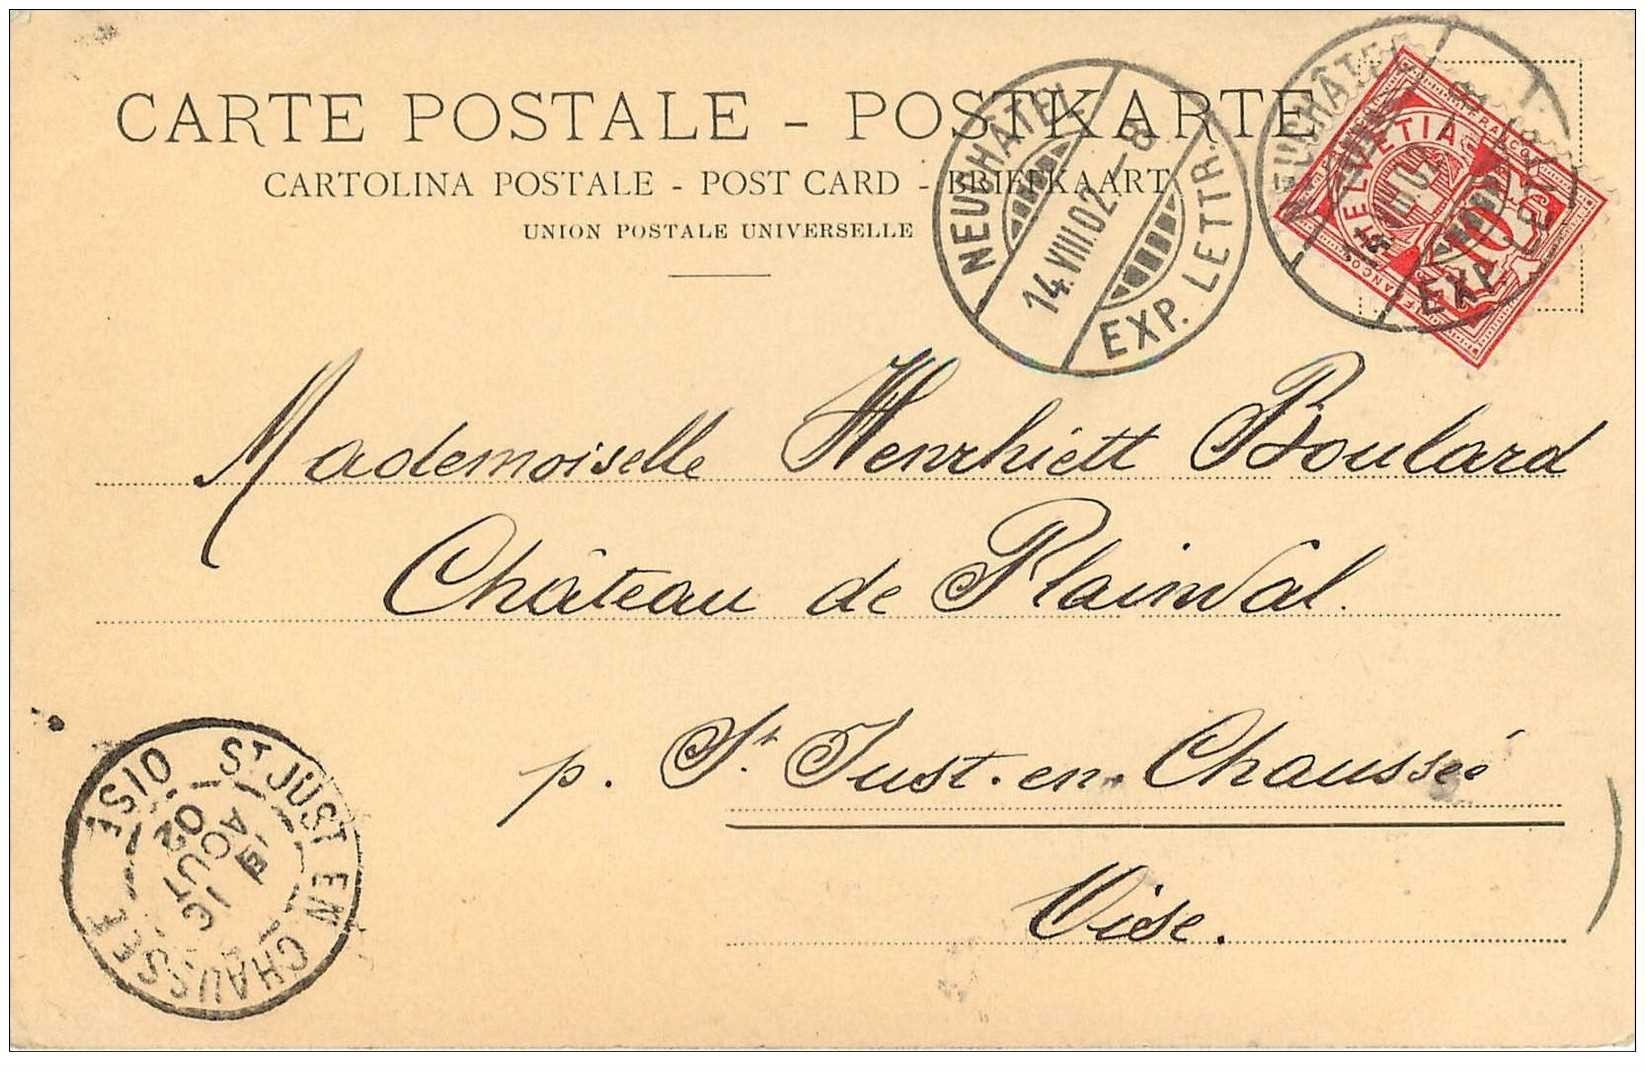 CARTE POSTALE - POSTKARTE
CARTOLINA POSTALE - POST CARD - BRIEFKAART
UNION POSTALE UNIVERSELLE
NEUCHÂTEL
14.VIII.02.-8
EXP. LETTR.
NEUCHÂTEL
VIII.02
EXP. LETTR.
HELVETIA
FRANCO
10
Mademoiselle Henrhiett Boulard
Château de Plainval.
p. St. Just-en-Chaussée
Oise.
ST JUST EN CHAUSSEE
OISE
16
AOUT
02